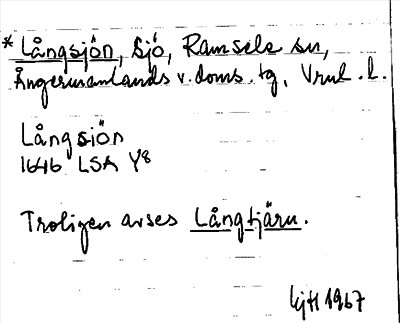 * Långsjön, sjö, Ramsele sn,
Ångermanlands v. doms. tg, Vrnl. l.
Långsjön
1646 LSA Y8
Troligen avses Långtjärn.
1967